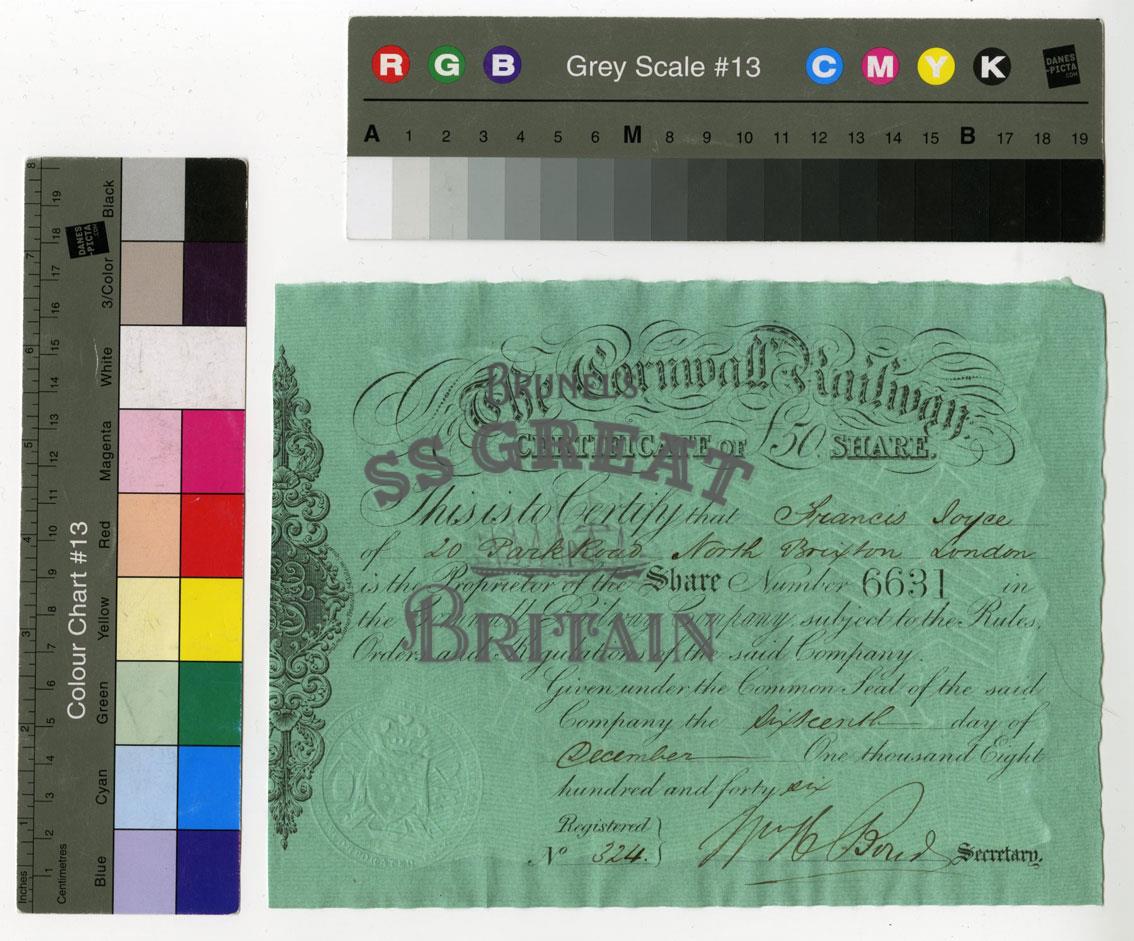 R G B Grey Scale #13 C M Y K DANES -PICTA .COM
A 1 2 3 4 5 6 M 8 9 10 11 12 13 14 15 B 17 18 19
Colour Chart #13
DANES -PICTA .COM
Inches 1 2 3 4 5 6 7 8
Centimetres 1 2 3 4 5 6 7 8 9 10 11 12 13 14 15 16 17 18 19
Black
3/Color
White
Magenta
Red
Yellow
Green
Cyan
Blue
The Cornwall Railway.
CERTIFICATE OF £50. SHARE.
This is to Certify that Francis Joyce
of 20 Park Road North Brixton London
is the Proprietor of the Share Number 6631 in
the Cornwall Railway Company, subject to the Rules,
Orders and Regulations of the said Company.
Given under the Common Seal of the said
Company the Sixteenth day of
December One thousand Eight
hundred and forty six
Registered
No 324.
Wm H Bond Secretary.
BRUNEL'S
SS GREAT
BRITAIN